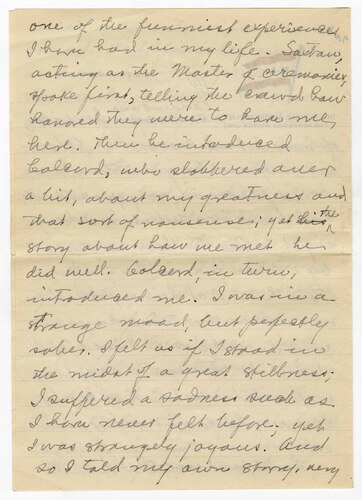 one of the funniest experiences
I have had in my life. Satan,
acting as the Master of ceremonies,
spoke first, telling the crowd how
honored they were to have me
here. Then he introduced
Colcord, who slobbered over
a bit, about my greatness and
that sort of nonsense; yet his the
story about how we met he
did well. Colcord, in turn,
introduced me. I was in a
strange mood, but perfectly
sober. I felt as if I stood in
the midst of a great stillness;
I suffered a sadness such as
I have never felt before; yet
I was strangely joyous. And
so I told my own story, very